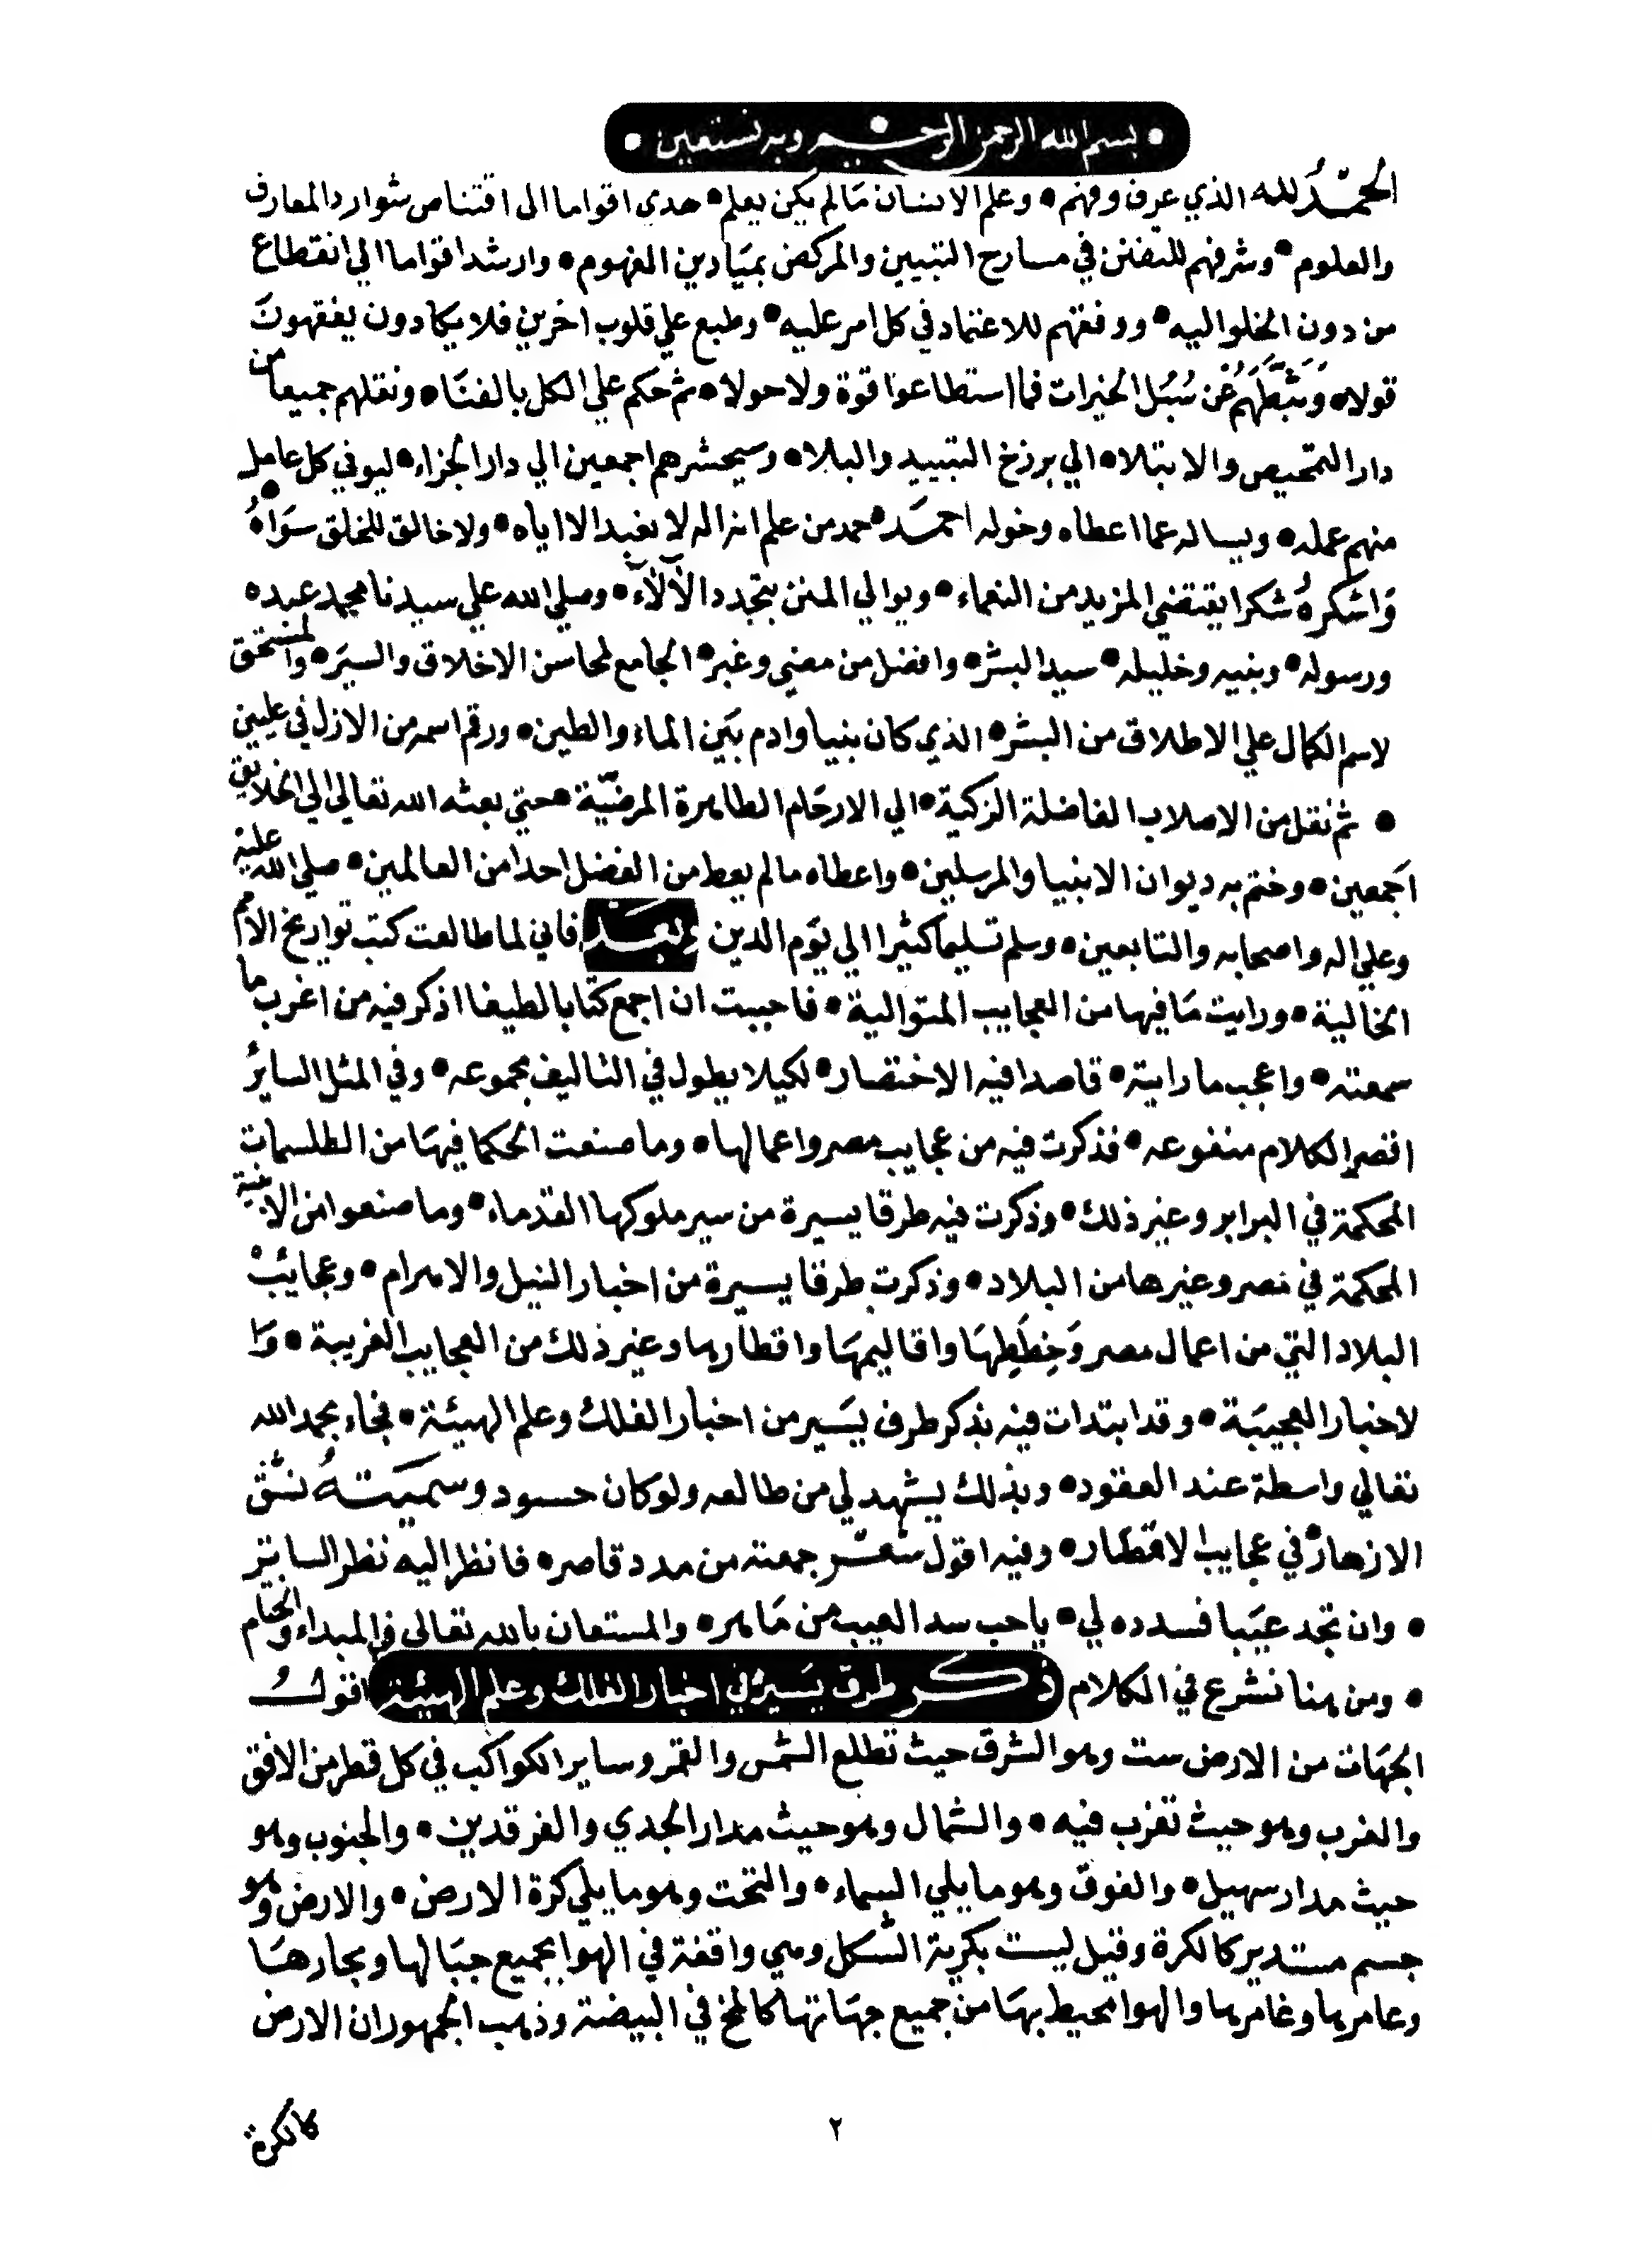 • بسم الله الرحمن الرحيم وبه نستعين •
الحمد لله الذي عرف وفهم • وعلم الانسان مالم يكن يعلم • هدي اقواما الى اقتناص شوارد المعارف
والعلوم • وشرفهم للتفنن في مسارح التبيين والمركض بميادين الفهوم • وارشد اقواما الي انقطاع
من دون الخلوا اليه • ووفقهم للاعتماد في كل امر عليه • وطبع علي قلوب اخرين فلا يكادون يفقهون
قولا • وثبطهم عن سُبُل الخيرات فما استطاعوا قوة ولا حولا • ثم حكم علي الكل بالفنا • ونقلهم جميعا من
دار التمحيص والابتلا • الي برزخ التبييد والبلا • وسيحشرهم اجمعين الي دار الجزاء • ليوفي كل عامل
منهم عمله • ويساله عما اعطاه وخوله • احمده حمد من علم انه اله لا نعبد الا اياه • ولا خالق للخلق سواهُ
وَاشكرهُ شكرا يقتضي المزيد من النعماء • ويوالي المنن بتجدد الآلآء • وصلي الله علي سيدنا محمد عبده
ورسوله • ونبيه وخليله • سيد البشر • وافضل من مضي وغبر • الجامع لمحاسن الاخلاق والسير • والمستحق
لاسم الكمال علي الاطلاق من البشر • الذي كان نبيا وادم بَين الماء والطين • ورقم اسمه من الازل في عليين
• ثم نقل من الاصلاب الفاضلة الزكية • الي الارحَام الطاهرة المرضيّة • حتي بعثه الله تعالي الي الخلايق
اجمعين • وختم به ديوان الانبيا والمرسلين • واعطاه مالم يعط من الفضل احدا من العالمين • صلي الله عليه
وعلي اله واصحابه والتابعين • وسلم تسليما كثيرا الي يوم الدين وبعد فاني لما طالعت كتب تواريخ الامم
الخالية • ورايت مَا فيها من العجايب المتوالية • فاحببت ان اجمع كتابا لطيفا اذكر فيه من اغرب ما
سمعته • واعجب ما رايته • قاصدا فيه الاختصار • لكيلا يطول في التاليف مجموعه • وفي المثل السايرُ
اقصر الكلام منفوعه • فذكرت فيه من عجايب مصر واعمالها • وما صنعت الحكما فيهَا من الطلسمات
المحكمة في البرابر وغير ذلك • وذكرت فيه طرفا يسيرة من سير ملوكها القدماء • وما صنعوا من الابنية
المحكمة في مصر وغيرها من البلاد • وذكرت طرفا يسيرة من اخبار النيل والاهرام • وعجايبْ
البلاد التي من اعمال مصر وَخِطَطِهَا واقاليمهَا واقطارها وغير ذلك من العجايب الغريبة • وَا
لاخبار العجيبَة • وقد ابتدات فيه بذكر طرف يَسير من اخبار الفلك وعلم الهيئة • فجاء بحمد الله
تعالي واسطة عند العقود • وبذلك يشهد لي من طالعه ولو كان حسود وسميتهُ نشق
الازهار في عجايب الاقطار • وفيه اقول شعر جمعته من مدد قاصر • فانظر اليه نظر الساتر
• وان تجد عيَبا فسدده لي • ياحب سد العيب من مَاهر • والمستعان بالله تعالي في المبداء والختام
• ومن هنا نشرع في الكلام ذكر طرف يَسير في اخبار الفلك وعلم الهيئة اقول
الجهَات من الارض ست وهو الشرق حيث تطلع الشمس والقمر وساير الكواكب في كل قطر من الافق
والغرب وهو حيث تغرب فيه • والشمال وهو حيث مدار الجدي والفرقدين • والجنوب وهو
حيث مدار سهيل • والفوق وهو ما يلي السماء • والتحت وهو ما يلي كرة الارض • والارض وهو
جسم مستدير كالكرة وقيل ليست بكرية الشكل وهي واقفة في الهوا بجميع جبَالها وبحارهَا
وعامرها وغامرها والهوا محيط بهَا من جميع جهَاتها كالمخ في البيضة وذهب الجمهور ان الارض
٢
كالكرة